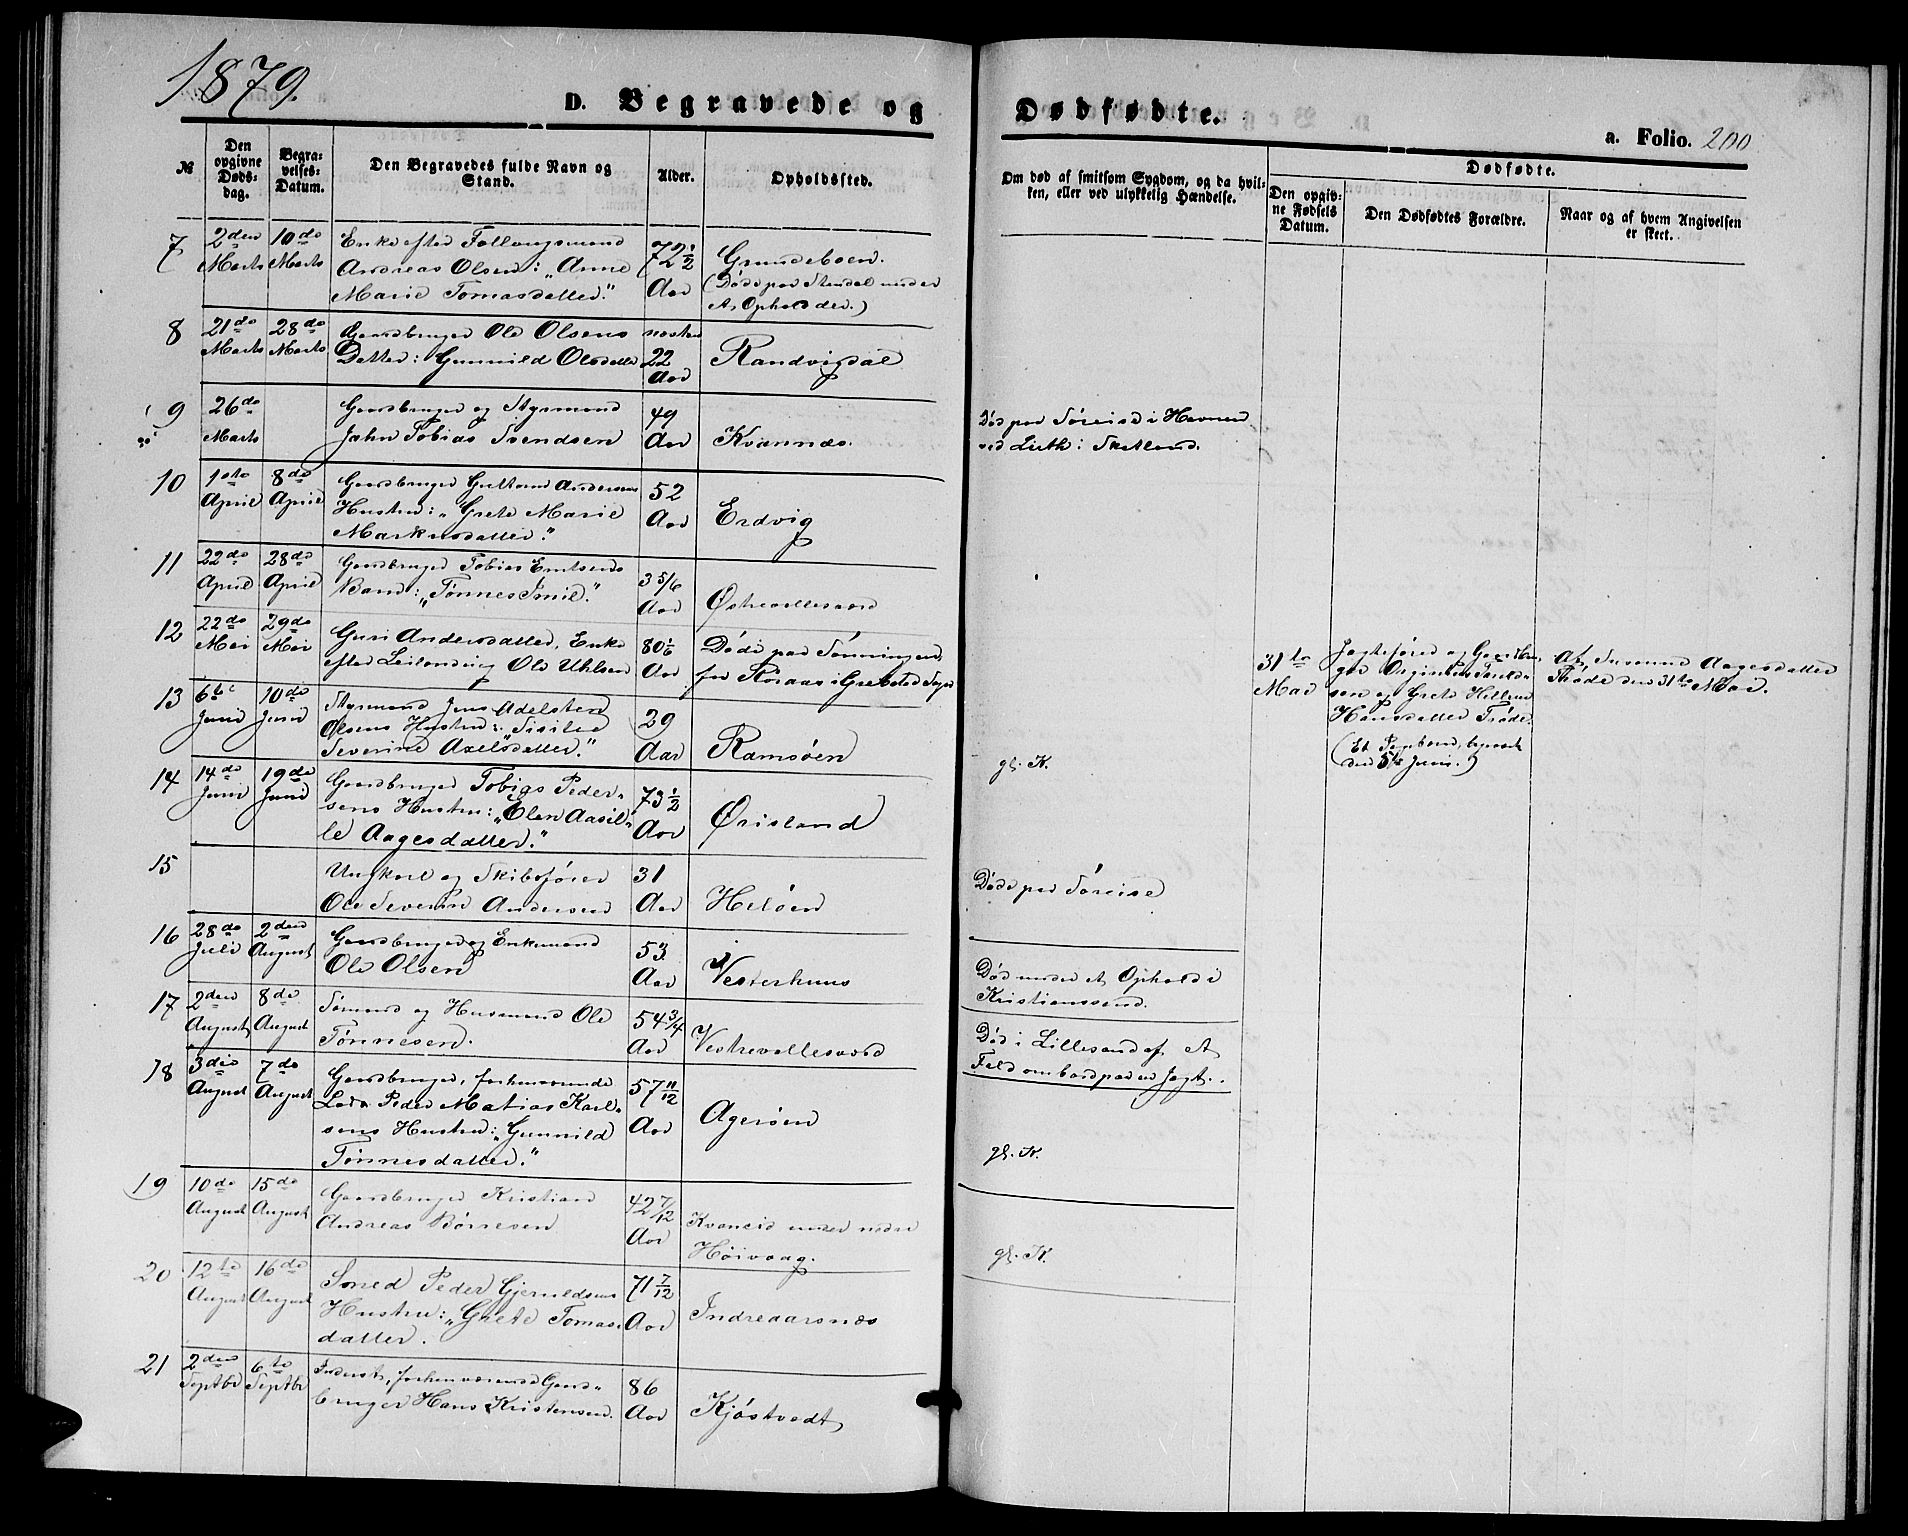 1879.
D. Begravede og Dødfødte.
a. Folio. 200
№
Den opgivne Døds-dag.
Begra-velses-Datum.
Den Begravedes fulde Navn og Stand.
Alder.
Opholdssted.
Om død af smitsom Sygdom, og da hvil-ken, eller ved ulykkelig Hændelse.
Dødfødte.
Den opgiv-ne Fødsels Datum.
Den Dødfødtes Forældre.
Naar og af hvem Angivelsen er skeet.
7
2den Marts
10de Marts
Enke efter
Andreas Olsen: „Anne
Marie Tomasdatter."
72 1/2 Aar
Grundeboen.
8
21de Marts
28de Marts
Gaardbruger Ole Olsens
Datter: Gunnild Olsdatter
næsten 22 Aar
Randvigdal
9
26de Marts
Gaardbruger og Styrmand
Jahn Tobias Svendsen
49 Aar
Kvannæs.
Død paa Søreise i Havnen
ved Leith i Skotland.
10
1ste April
8de April
Gaardbruger Guttorm Andersens
Hustru: „Grete Marie
Markusdatter."
52 Aar
Erdvig
11
22de April
28de April
Gaardbruger Tobias Emilsens
Barn: „Tønnes Emil."
3 5/6 Aar
Østrevallesværd
12
22de Mai
29de Mai
Guri Andersdatter, Enke
efter Leilending Ole Uhlsen
80 1/6 Aar
Døde paa
13
6te Juni
10de Juni
Styrmand Jens Adelsten
Olsens Hustru: „Sisilie
Severine Axelsdatter."
29 Aar
Ramsøen
gl. K.
31te Mai
Hansdatter Trøde.
Af Susanne Aagesdatter
Trøde den 31te Mai.
14
14de Juni
19de Juni
Gaardbruger Tobias Peder-
sens Hustru: „Elen Aasil-
le Aagesdatter."
73 1/2 Aar
Ørisland
15
Ungkarl og Skibsfører
Ole Severin Andersen
31 Aar
Heløen
Døde paa Søreise
16
28de Juli
2den August
Gaardbruger og Enkemand
Ole Olsen
53 Aar
Vesterhuus
Død under et Ophold i
Kristianssand.
17
2den August
8de August
Sømand og Husmand Ole
Tønnesen.
54 3/4 Aar
Vestrevallesværd
Død i Lillesand af et
Fald ombord paa en Jagt.
18
3die August
7de August
Gaardbruger, forhenværende
Lods Peder Matias Karl-
sens Hustru: „Gunnild
Tønnesdatter."
57 11/12 Aar
Agerøen
gl. K.
19
10de August
15de August
Gaardbruger Kristian
Andreas Børresen
42 7/12 Aar
Kvaneid under nedre
Høivaag.
gl. K.
20
12te August
16de August
Smed Peder Gjeruldsens
Hustru: „Grete Tomas-
datter.
71 7/12 Aar
Indreaarsnæs
21
2den Septbr
6te Septbr
Inderst, forhenværende Gaard-
bruger Hans Kristensen.
86 Aar
Kjøstvedt